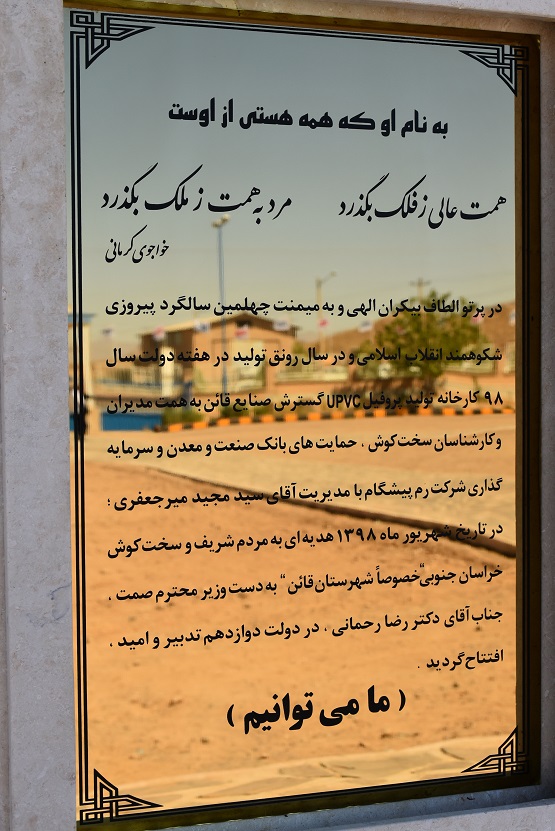 به نام او که همه هستی از اوست
همت عالی ز فلک بگذرد مرد به همت ز ملک بگذرد
خواجوی کرمانی
در پرتو الطاف بیکران الهی و به میمنت چهلمین سالگرد پیروزی
شکوهمند انقلاب اسلامی و در سال رونق تولید در هفته دولت سال
۹۸ کارخانه تولید پروفیل UPVC گسترش صنایع قائن به همت مدیران
و کارشناسان سخت‌کوش ، حمایت های بانک صنعت و معدن و سرمایه
گذاری شرکت رم پیشگام با مدیریت آقای سید مجید میرجعفری ؛
در تاریخ شهریور ماه ۱۳۹۸ هدیه ای به مردم شریف و سخت‌کوش
خراسان جنوبی "خصوصاً شهرستان قائن" به دست وزیر محترم صمت ،
جناب آقای دکتر رضا رحمانی ، در دولت دوازدهم تدبیر و امید ،
افتتاح گردید .
( ما می توانیم )